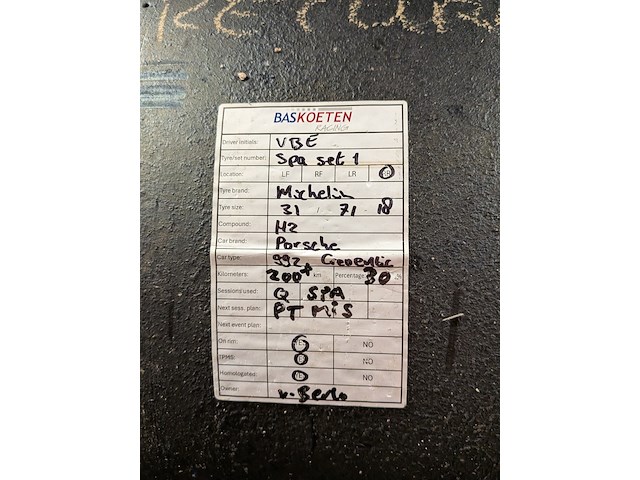 RETUR
BASKOETEN
RACING
Driver initials: VBE
Tyre/set number: Spa set 1
Location: LF RF LR RR
Tyre brand: Michelin
Tyre size: 31 / 71 18
Compound: H2
Car brand: Porsche
Car type: 992
Kilometers: 200+ km Percentage: 30 %
Sessions used: Q SPA
Next sess. plan: PT MIS
Next event plan:
On rim: YES NO
TPMS: YES NO
Homologated: YES NO
Owner: v. Berlo